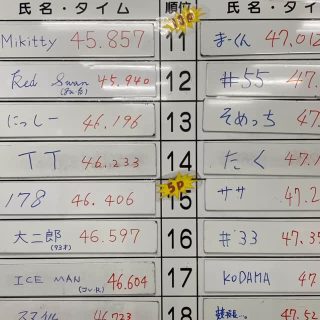 氏名・タイム 順位 氏名・タイム
Mikitty 45.857 11 まーくん 47.012
Red Swan 45.940 12 #55 47.
にっしー 46.196 13 そめっち 47.
TT 46.233 14 たく 47.1
5P
178 46.406 15 ササ 47.2
大二郎 46.597 16 #33 47.35
ICE MAN 46.604 17 KODAMA 47.
スマイル 46.723 18 47.52